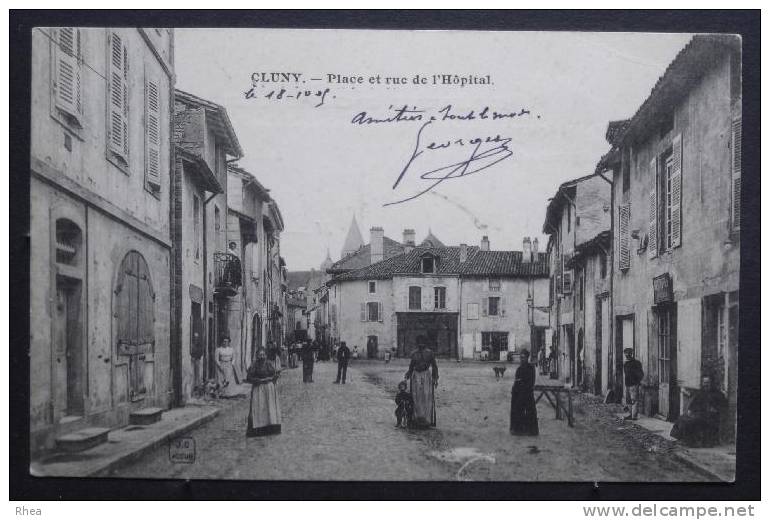 CLUNY. — Place et rue de l'Hôpital.
le 18-10-05
Amitiés à tout le monde.
Georges
J.C
Rhea
www.delcampe.net